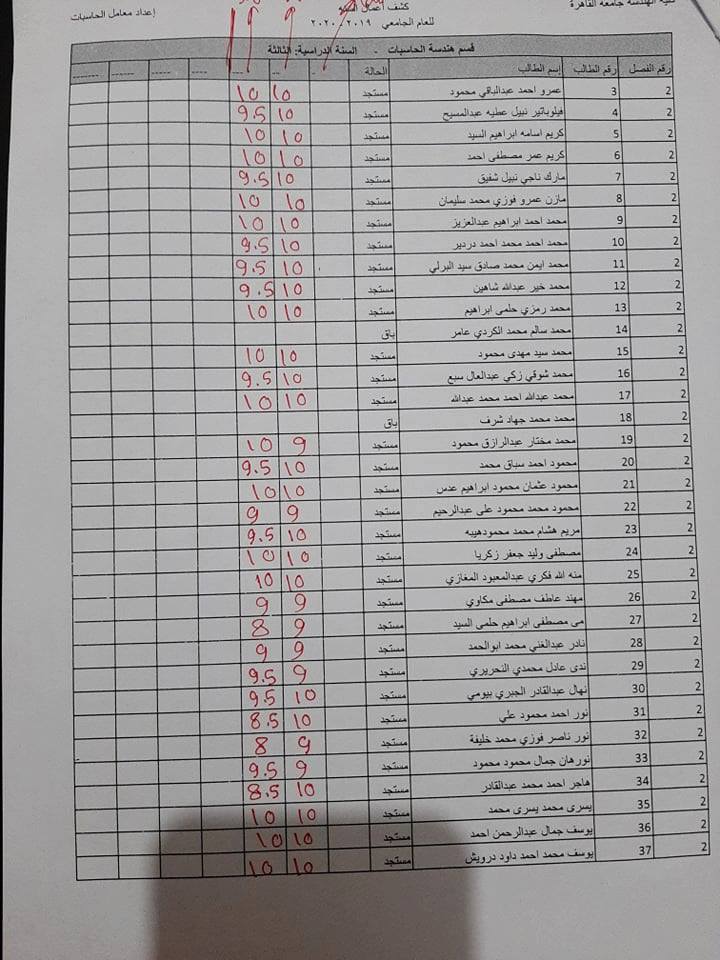 كلية الهندسة جامعة القاهرة
كشف أعمال السنة
إعداد معامل الحاسبات
للعام الجامعي ٢٠١٩ / ٢٠٢٠
قسم هندسة الحاسبات - السنة الدراسية: الثالثة
رقم الفصل رقم الطالب إسم الطالب الحالة
2 3 عمرو احمد عبدالباقي محمود مستجد 10 10
2 4 فيلوباتير نبيل عطيه عبدالمسيح مستجد 10 9.5
2 5 كريم اسامه ابراهيم السيد مستجد 10 10
2 6 كريم عمر مصطفى احمد مستجد 10 10
2 7 مارك ناجي نبيل شفيق مستجد 10 9.5
2 8 مازن عمرو فوزي محمد سليمان مستجد 10 10
2 9 محمد احمد ابراهيم عبدالعزيز مستجد 10 10
2 10 محمد احمد محمد احمد دردير مستجد 10 9.5
2 11 محمد ايمن محمد صادق سيد البرلي مستجد 10 9.5
2 12 محمد خير عبدالله شاهين مستجد 10 9.5
2 13 محمد رمزي حلمى ابراهيم مستجد 10 10
2 14 محمد سالم محمد الكردي عامر باق
2 15 محمد سيد مهدى محمود مستجد 10 10
2 16 محمد شوقي زكي عبدالعال سبع مستجد 10 9.5
2 17 محمد عبدالله احمد محمد عبدالله مستجد 10 10
2 18 محمد محمد جهاد شرف باق
2 19 محمد مختار عبدالرازق محمود مستجد 9 10
2 20 محمود احمد سباق محمد مستجد 10 9.5
2 21 محمود عثمان محمود ابراهيم عدس مستجد 10 10
2 22 محمود محمد محمود على عبدالرحيم مستجد 9 9
2 23 مريم هشام محمد محمودهيبه مستجد 10 9.5
2 24 مصطفى وليد جعفر زكريا مستجد 10 10
2 25 منه الله فكري عبدالمعبود المغازي مستجد 10 10
2 26 مهند عاطف مصطفى مكاوي مستجد 9 9
2 27 مى مصطفى ابراهيم حلمى السيد مستجد 9 8
2 28 نادر عبدالغني محمد ابوالحمد مستجد 9 9
2 29 ندى عادل محمدي النحريري مستجد 9 9.5
2 30 نهال عبدالقادر الجبري بيومي مستجد 10 9.5
2 31 نور احمد محمود علي مستجد 10 8.5
2 32 نور ناصر فوزي محمد خليفة مستجد 9 8
2 33 نورهان جمال محمود محمود مستجد 9 9.5
2 34 هاجر احمد محمد عبدالقادر مستجد 10 8.5
2 35 يسرى محمد يسرى محمد مستجد 10 10
2 36 يوسف جمال عبدالرحمن احمد مستجد 10 10
2 37 يوسف محمد احمد داود درويش مستجد 10 10